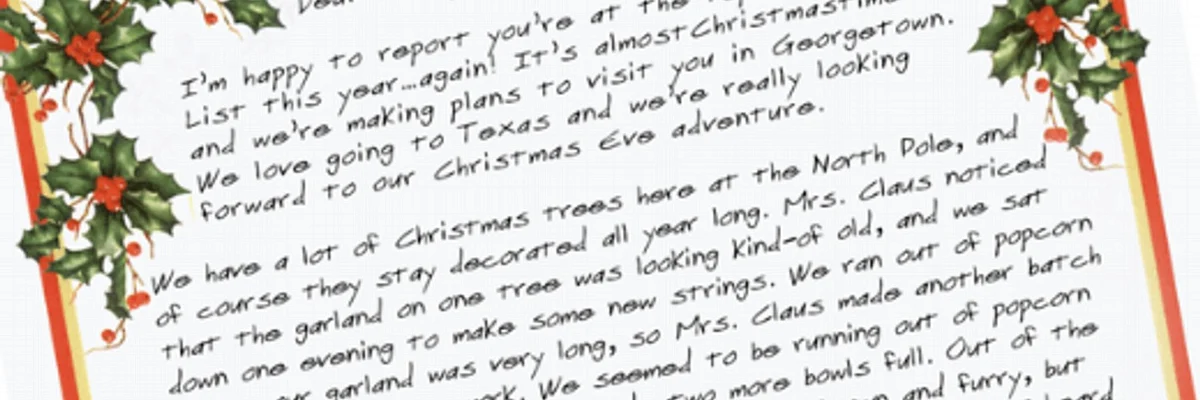 Dear
I'm happy to report you're at the
List this year...again! It's almost Christmastime
and we're making plans to visit you in Georgetown.
We love going to Texas and we're really looking
forward to our Christmas Eve adventure.
We have a lot of Christmas trees here at the North Pole, and
of course they stay decorated all year long. Mrs. Claus noticed
that the garland on one tree was looking kind-of old, and we sat
down one evening to make some new strings. We ran out of popcorn
garland was very long, so Mrs. Claus made another batch
We seemed to be running out of popcorn
two more bowls full. Out of the
and furry, but